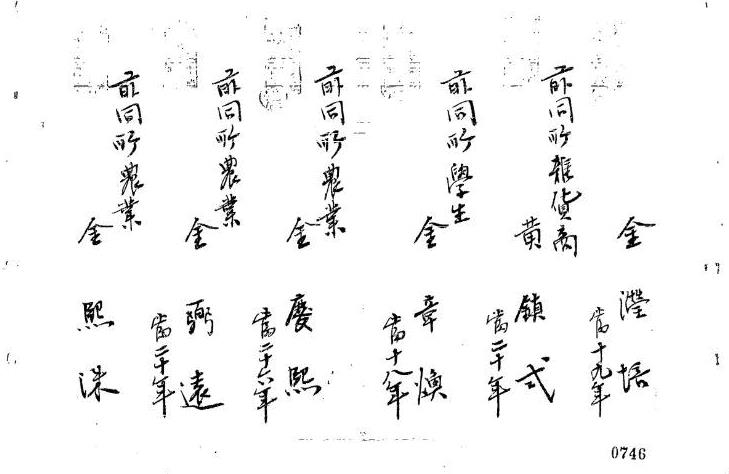 金瀅培
當十九年
前同所雜貨商
黃鎮式
當二十年
前同所學生
金章煥
當十八年
前同所農業
金慶熙
當二十六年
前同所農業
金弼遠
當二十年
前同所農業
金熙洙
0746